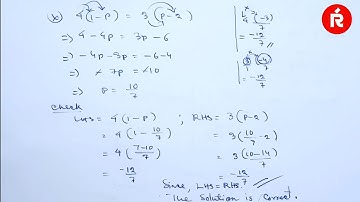 4(1-P) = 3(P-2)
⇒ 4-4P = 3P-6
⇒ -4P-3P = -6-4
⇒ -7P = -10
⇒ P = 10/7
4 × (-3)/7
= -12/7
3 × (-4)/7
= -12/7
Check
LHS = 4(1-P) ; RHS = 3(P-2)
= 4(1-10/7) = 3(10/7-2)
= 4(7-10/7) = 3(10-14/7)
= -12/7 = -12/7
Since, LHS = RHS.
The solution is correct.